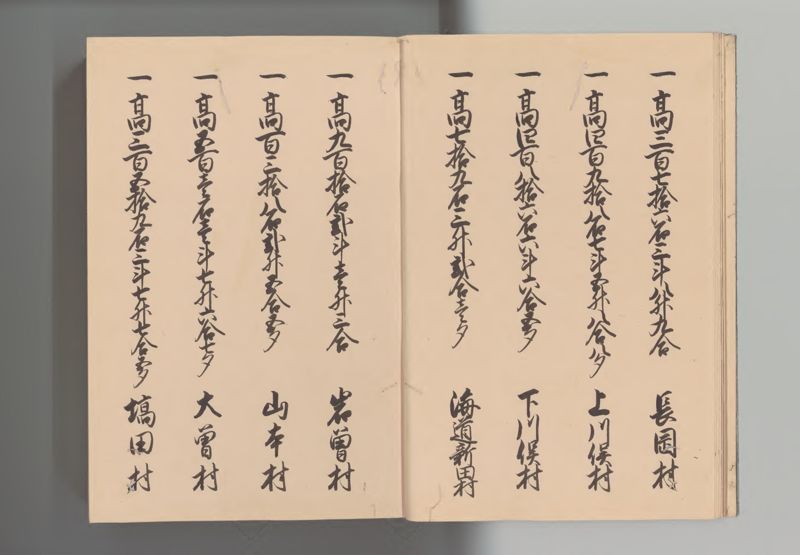 一高三百七拾六石三斗八升九合 長岡村
一高四百九拾八石七斗五升八合八夕 上川俣村
一高四百八拾六石六斗六合五夕 下川俣村
一高七拾九石三升弐合壱夕 海道新田村
一高九百拾石弐斗壱升三合 岩曽村
一高百三拾八石弐升五合五夕 山本村
一高五百壱石壱斗七升六合七夕 大曽村
一高三百五拾九石三斗七升七合五夕 塙田村